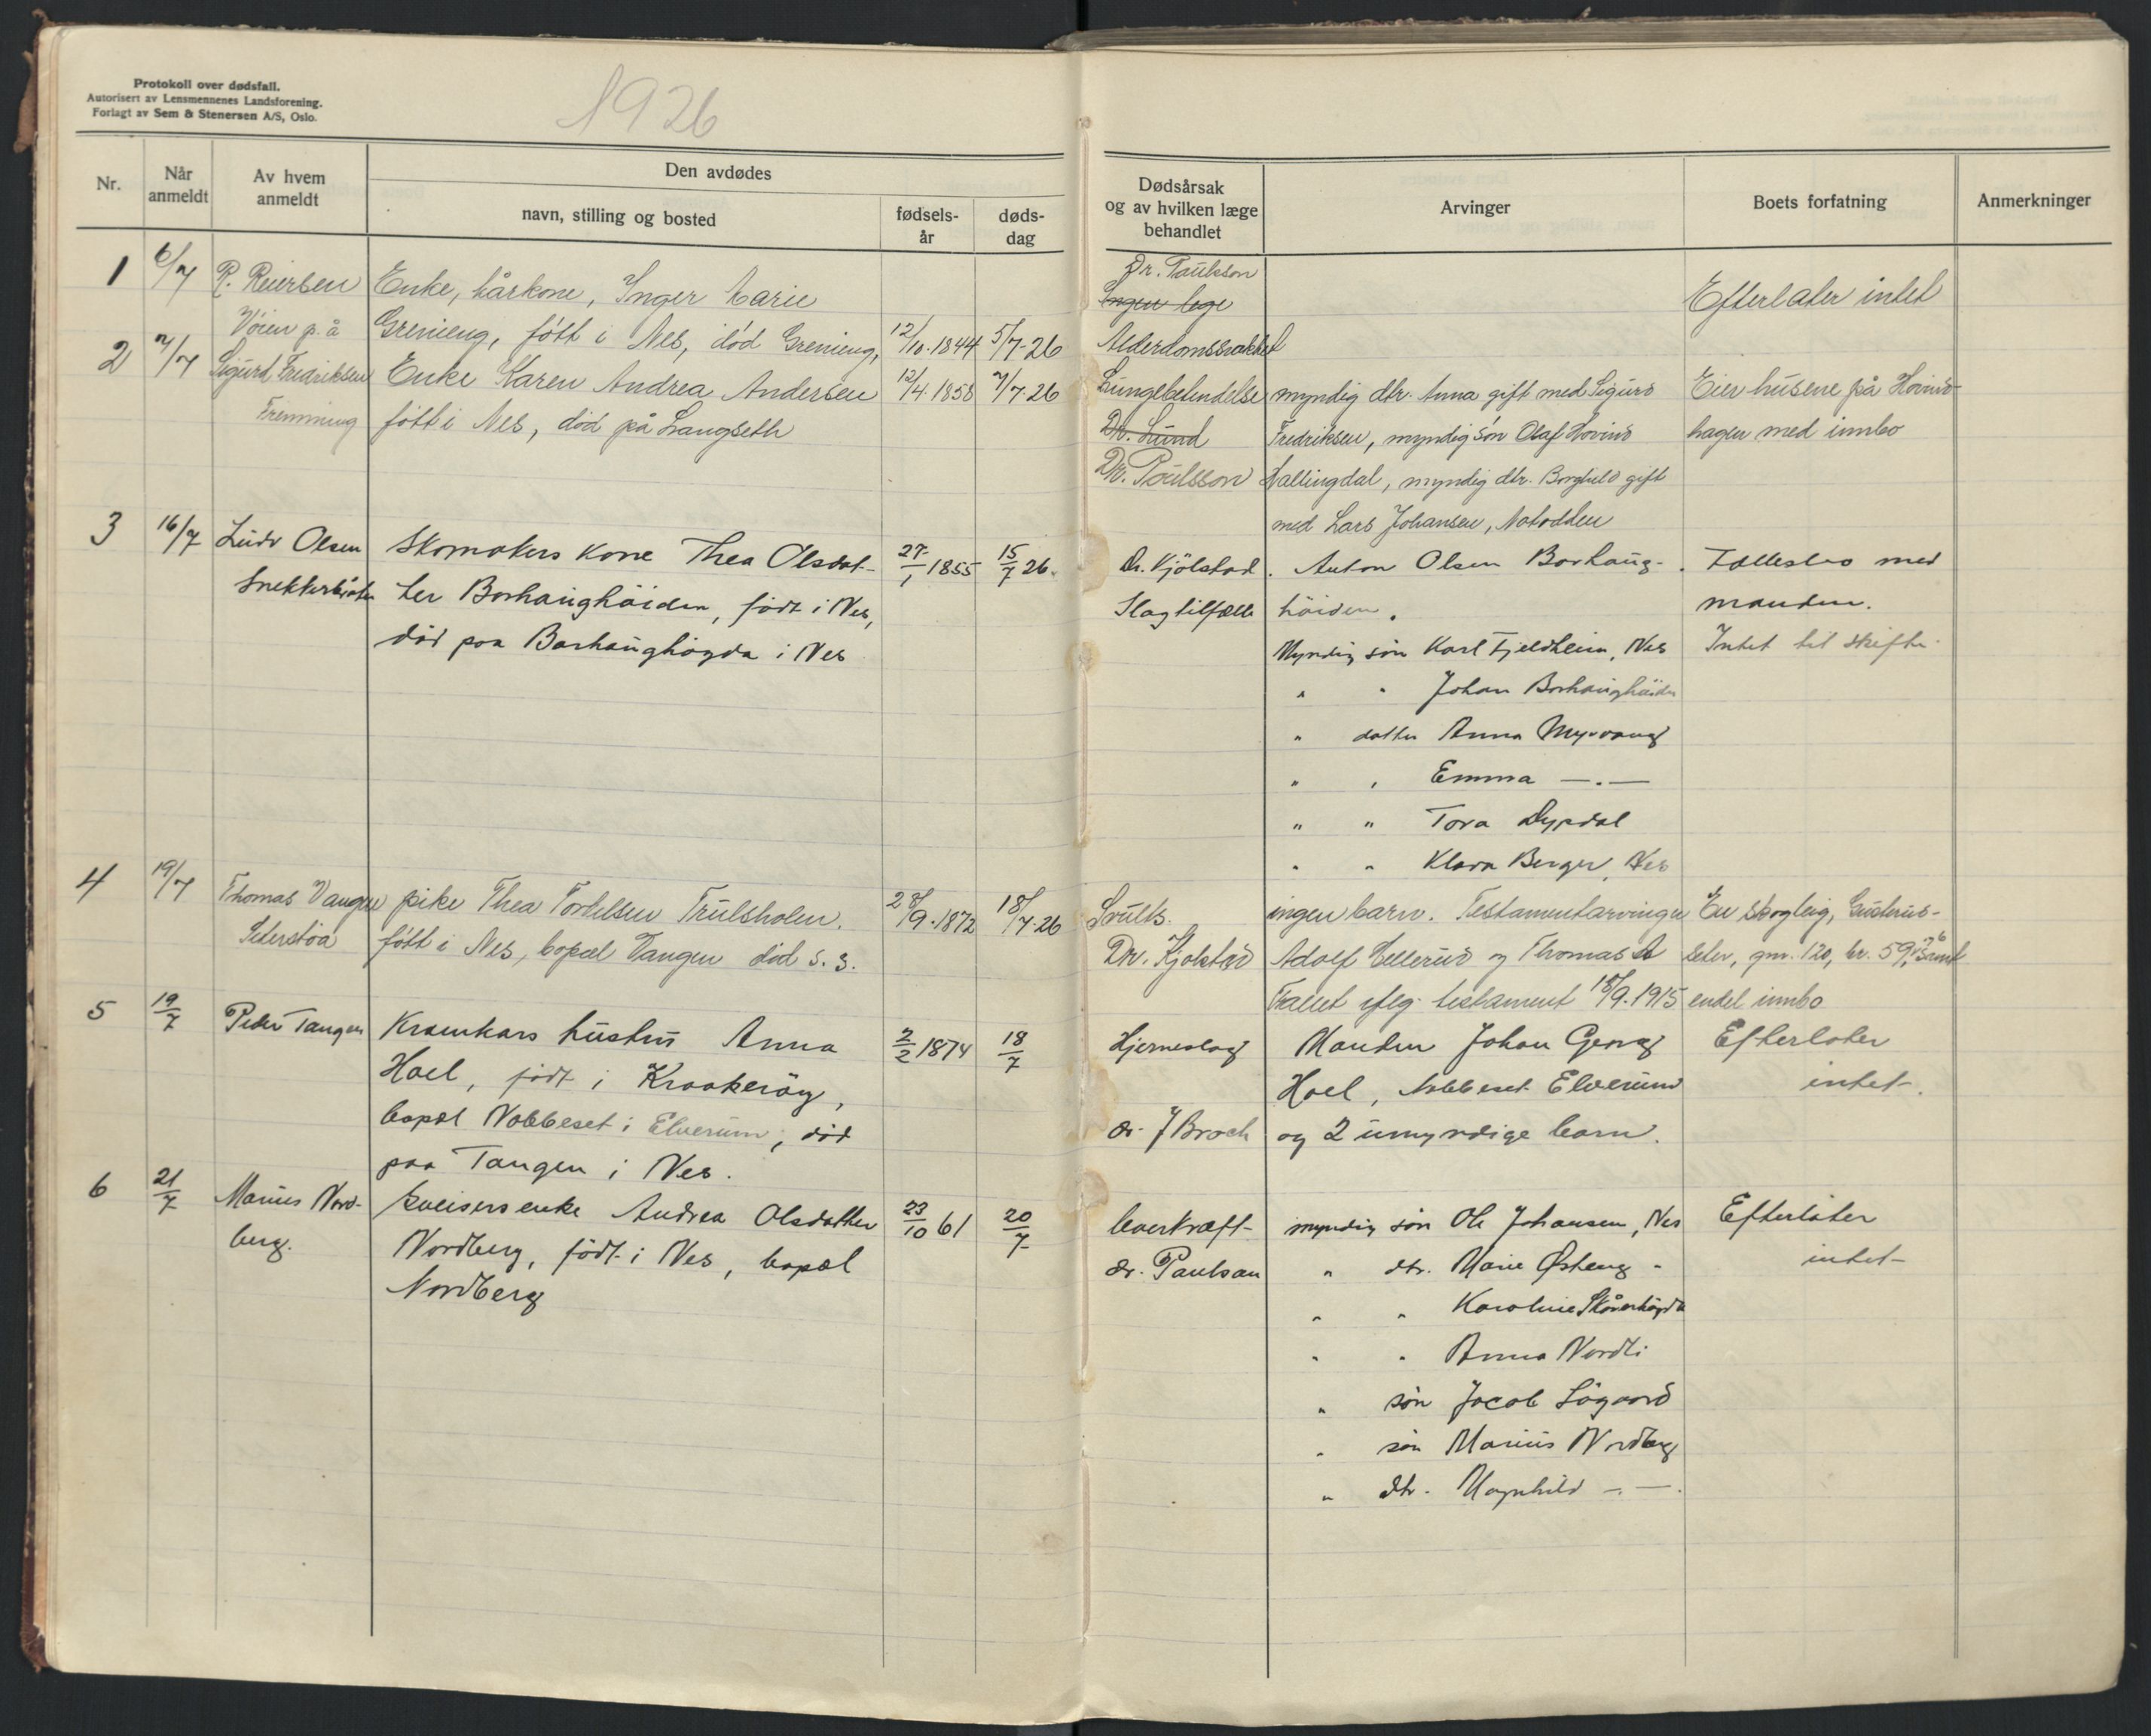 Protokoll over dødsfall.
Autorisert av Lensmennenes Landsforening.
Forlagt av Sem & Stenersen A/S, Oslo.
1926
Nr.
Når anmeldt
Av hvem anmeldt
Den avdødes
navn, stilling og bosted
fødsels-år
døds-dag
Dødsårsak og av hvilken læge behandlet
Arvinger
Boets forfatning
Anmerkninger
1 6/7 R. Reiersen Enke, kårkone, Inger Marie Dr. Paulsson Efterlater intet
Ingen lege
Vöien p. å Grenieng, fött i Nes, död Grenieng, 12/10.1844 5/7-26 Alderdomssvakhet
2 7/7 Sigurd Fredriksen Enke Karen Andrea Andersen 12/4.1858 7/7.26 Lungebetendelse myndig dtr. Anna gift med Sigurd Eier husene på Hovind-
Fremming fött i Nes, död på Langseth Dr. Lund Fredriksen, myndig sön Olaf Hovind hagen med innbo
Dr. Poulsson Hallingdal, myndig dtr. Borghild gift
med Lars Johansen, Notodden
3 16/7 Ludv Olsen Skomakers kone Thea Olsdat- 27/1 1855 15/7 26. Dr. Kjölstad. Anton Olsen Borhaug- Fællesbo med
ter Borhaughöiden, födt i Nes, Slagtilfælle höiden. manden.
död paa Borhaughögda i Nes Myndig sön Karl Fjeldheim, Nes Intet til skifte.
" " Johan Borhaughöiden
" datter Anna Myrvang
" " Emma —.—
" " Tora Dypdal
" " Klara Berger, Nes
4 19/7 Thomas Vangen pike Thea Torkelsen Trulsholen. 28/9.1872 18/7.26 Svulst. ingen barn. Testamentarvinger En skogteig,
Seterstöa fött i Nes, bopæl Vangen död s. s. Dr. Kjolstad Adolf Hellerud og Thomas A seter, gnr. 120, br. 59, samt
ifölg. testament 18/9.1915 endel innbo
5 19/7 Peder Tangen Kramkars hustru Anna 2/2 1874 18/7 Hjerneslag Manden Johan Georg Efterlater
Hoel, födt i Kraakeröy, Hoel, Nobbeset Elverum intet.
bopæl Nobbeset i Elverum, död dr. J Broch og 2 umyndige barn.
paa Tangen i Nes.
6 21/7 Marius Nord- enke Andrea Olsdatter 23/10 61 20/7 leverkræft myndig sön Ole Johansen, Nes Efterlater
berg. Nordberg, födt i Nes, bopæl dr. Paulsen " dtr. Marie Østeng " intet
Nordberg " " Karoline Skårerhögda
" " Anna Nordli
" sön Jacob Lögaard
" sön Marius Nordberg
" dtr. Magnhild —.—